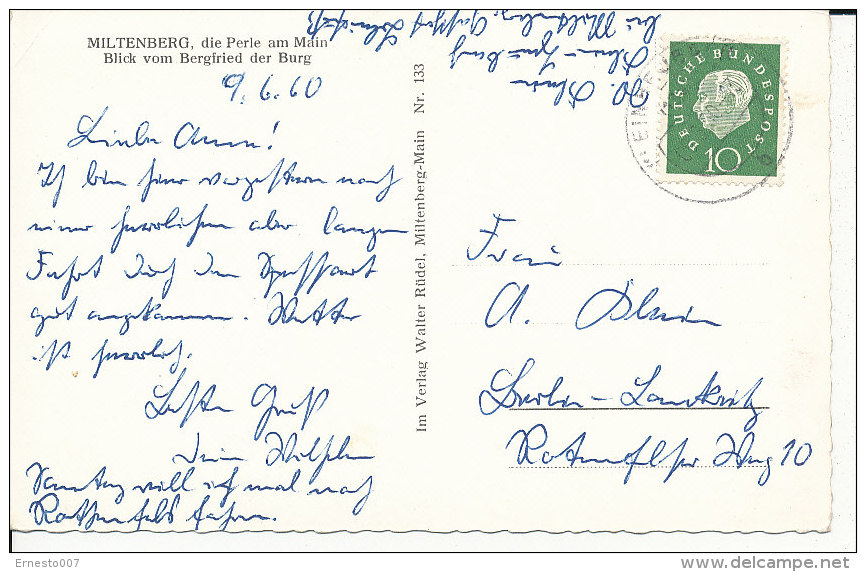 MILTENBERG, die Perle am Main
Blick vom Bergfried der Burg
9.6.60
Liebe Anna!
Ich bin hier vorgestern nach
einer herrlichen aber langen
Fahrt durch den Spessart
gut angekommen. Wetter
ist herrlich.
Beste Grüße
Dein Wilhelm
Sonntag will ich mal nach
Rothenfels fahren.
Im Verlag Walter Rüdel, Miltenberg-Main Nr. 133
bei Miltenberg Gasthof
DEUTSCHE BUNDESPOST
10
Frau
A.
Berlin-Lankwitz
Weg 10
Ernesto007
delcampe.net